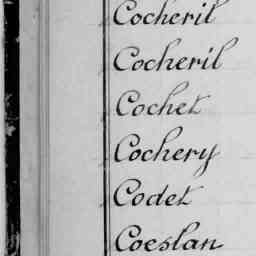 Cocheril
Cocheril
Cochet
Cochery
Codet
Coeslan